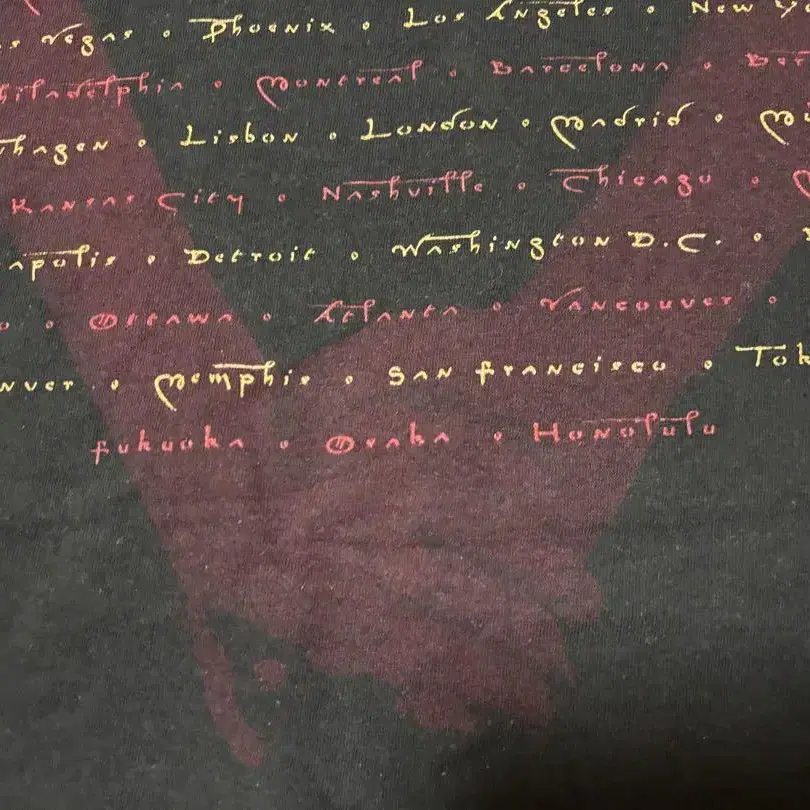 s Vegas • Phoenix • Los Angeles • New Yo
hiladelphia • Montreal • Barcelona • Ber
hagen • Lisbon • London • Madrid • Mu
Kansas City • Nashville • Chicago •
apolis • Detroit • Washington D.C. •
o • Ottawa • Atlanta • Vancouver •
nver • Memphis • San Francisco • Tok
Fukuoka • Osaka • Honolulu